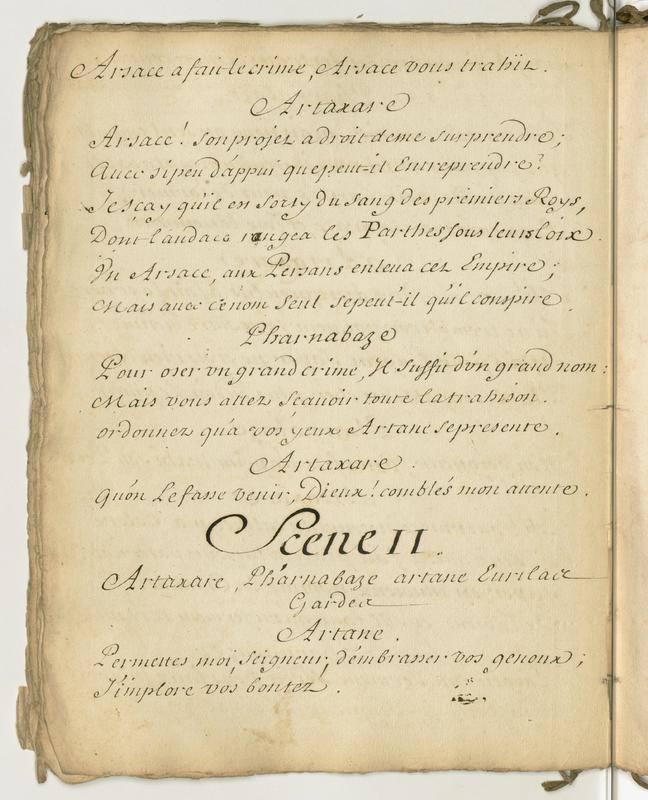 Arsace a fait le crime, Arsace vous trahit.
Artaxare
Arsace! son projet a droit de me surprendre;
Avec si peu d'appui que peut-il Entreprendre?
Je sçay qu'il en sorty du sang des premiers Roys,
Dont l'audace rangea les Parthes sous leurs loix.
Un Arsace, aux Persans enleva cet Empire;
Mais avec ce nom seul se peut-il qu'il conspire.
Pharnabaze
Pour oser vn grand crime, Il suffit d'vn grand nom:
Mais vous allez sçavoir toute la trahison.
ordonnez qu'a vos yeux Artane se presente.
Artaxare.
Qu'on Le fasse venir, Dieux! comblés mon attente.
Scene II.
Artaxare, Pharnabaze artane Eurilas
Gardes
Artane.
Permettes moi, seigneur, d'embrasser vos genoux;
J'implore vos bontez.